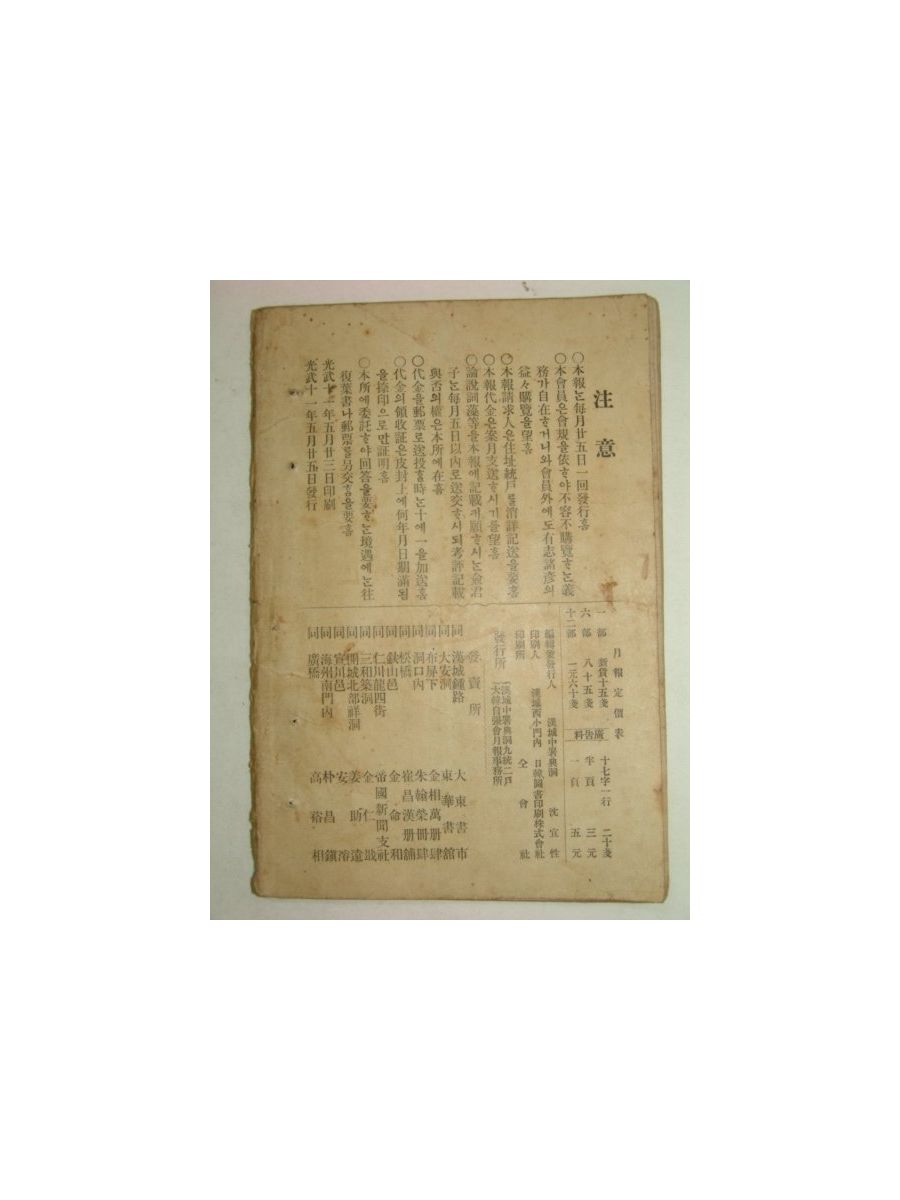 注意
○本報는每月廿五日一回發行홈
○本會員은會規을依ᄒᆞ야不容不購覽ᄒᆞ는義
務가自在ᄒᆞ거니와會員外에도有志諸彦의
益々購覽을望홈
○本報請求人은住址統戶를消詳記送을要홈
○本報代金은案月支送ᄒᆞ시기를望홈
○論說詞藻等을本報에記載케願ᄒᆞ시는僉君
子는每月五日以內로送交ᄒᆞ시되考評記載
與否의權은本所에在홈
○代金을郵票로送投ᄒᆞᆯ時는十에一을加送홈
○代金의領收証은皮封上에何年月日期滿됨
을捺印으로만証明홈
○本所에委託ᄒᆞ야回答을要ᄒᆞ는境遇에는往
復葉書나郵票를另交ᄒᆞᆷ을要홈
光武十一年五月廿三日印刷
光武十一年五月廿五日發行
月報定價表
一部 新貨十五戔
六部 八十五戔
十二部 一元六十戔
廣告料
十七字一行 二十戔
半頁 三元
一頁 五元
編輯兼發行人 漢城中署典洞 沈宜性
印刷人 漢城西小門內 日韓圖書印刷株式會社
印刷所 仝會社
發行所 漢城中署典洞九統二戶
大韓自强會月報事務所
發賣所
同 漢城鍾路 大東書市
同 大安洞 東華書舘
同 布屛下 金相萬册肆
同 洞口內 朱翰榮册肆
同 松橋 崔昌漢册舖
同 鉄山邑 金命和
同 仁川龍四街 帝國新聞支社
同 三和築洞 金仁
同 開城北部祥洞 姜助遠
同 宣川邑 安濬
同 海州南門內 朴昌鎭
同 廣橋 高裕相